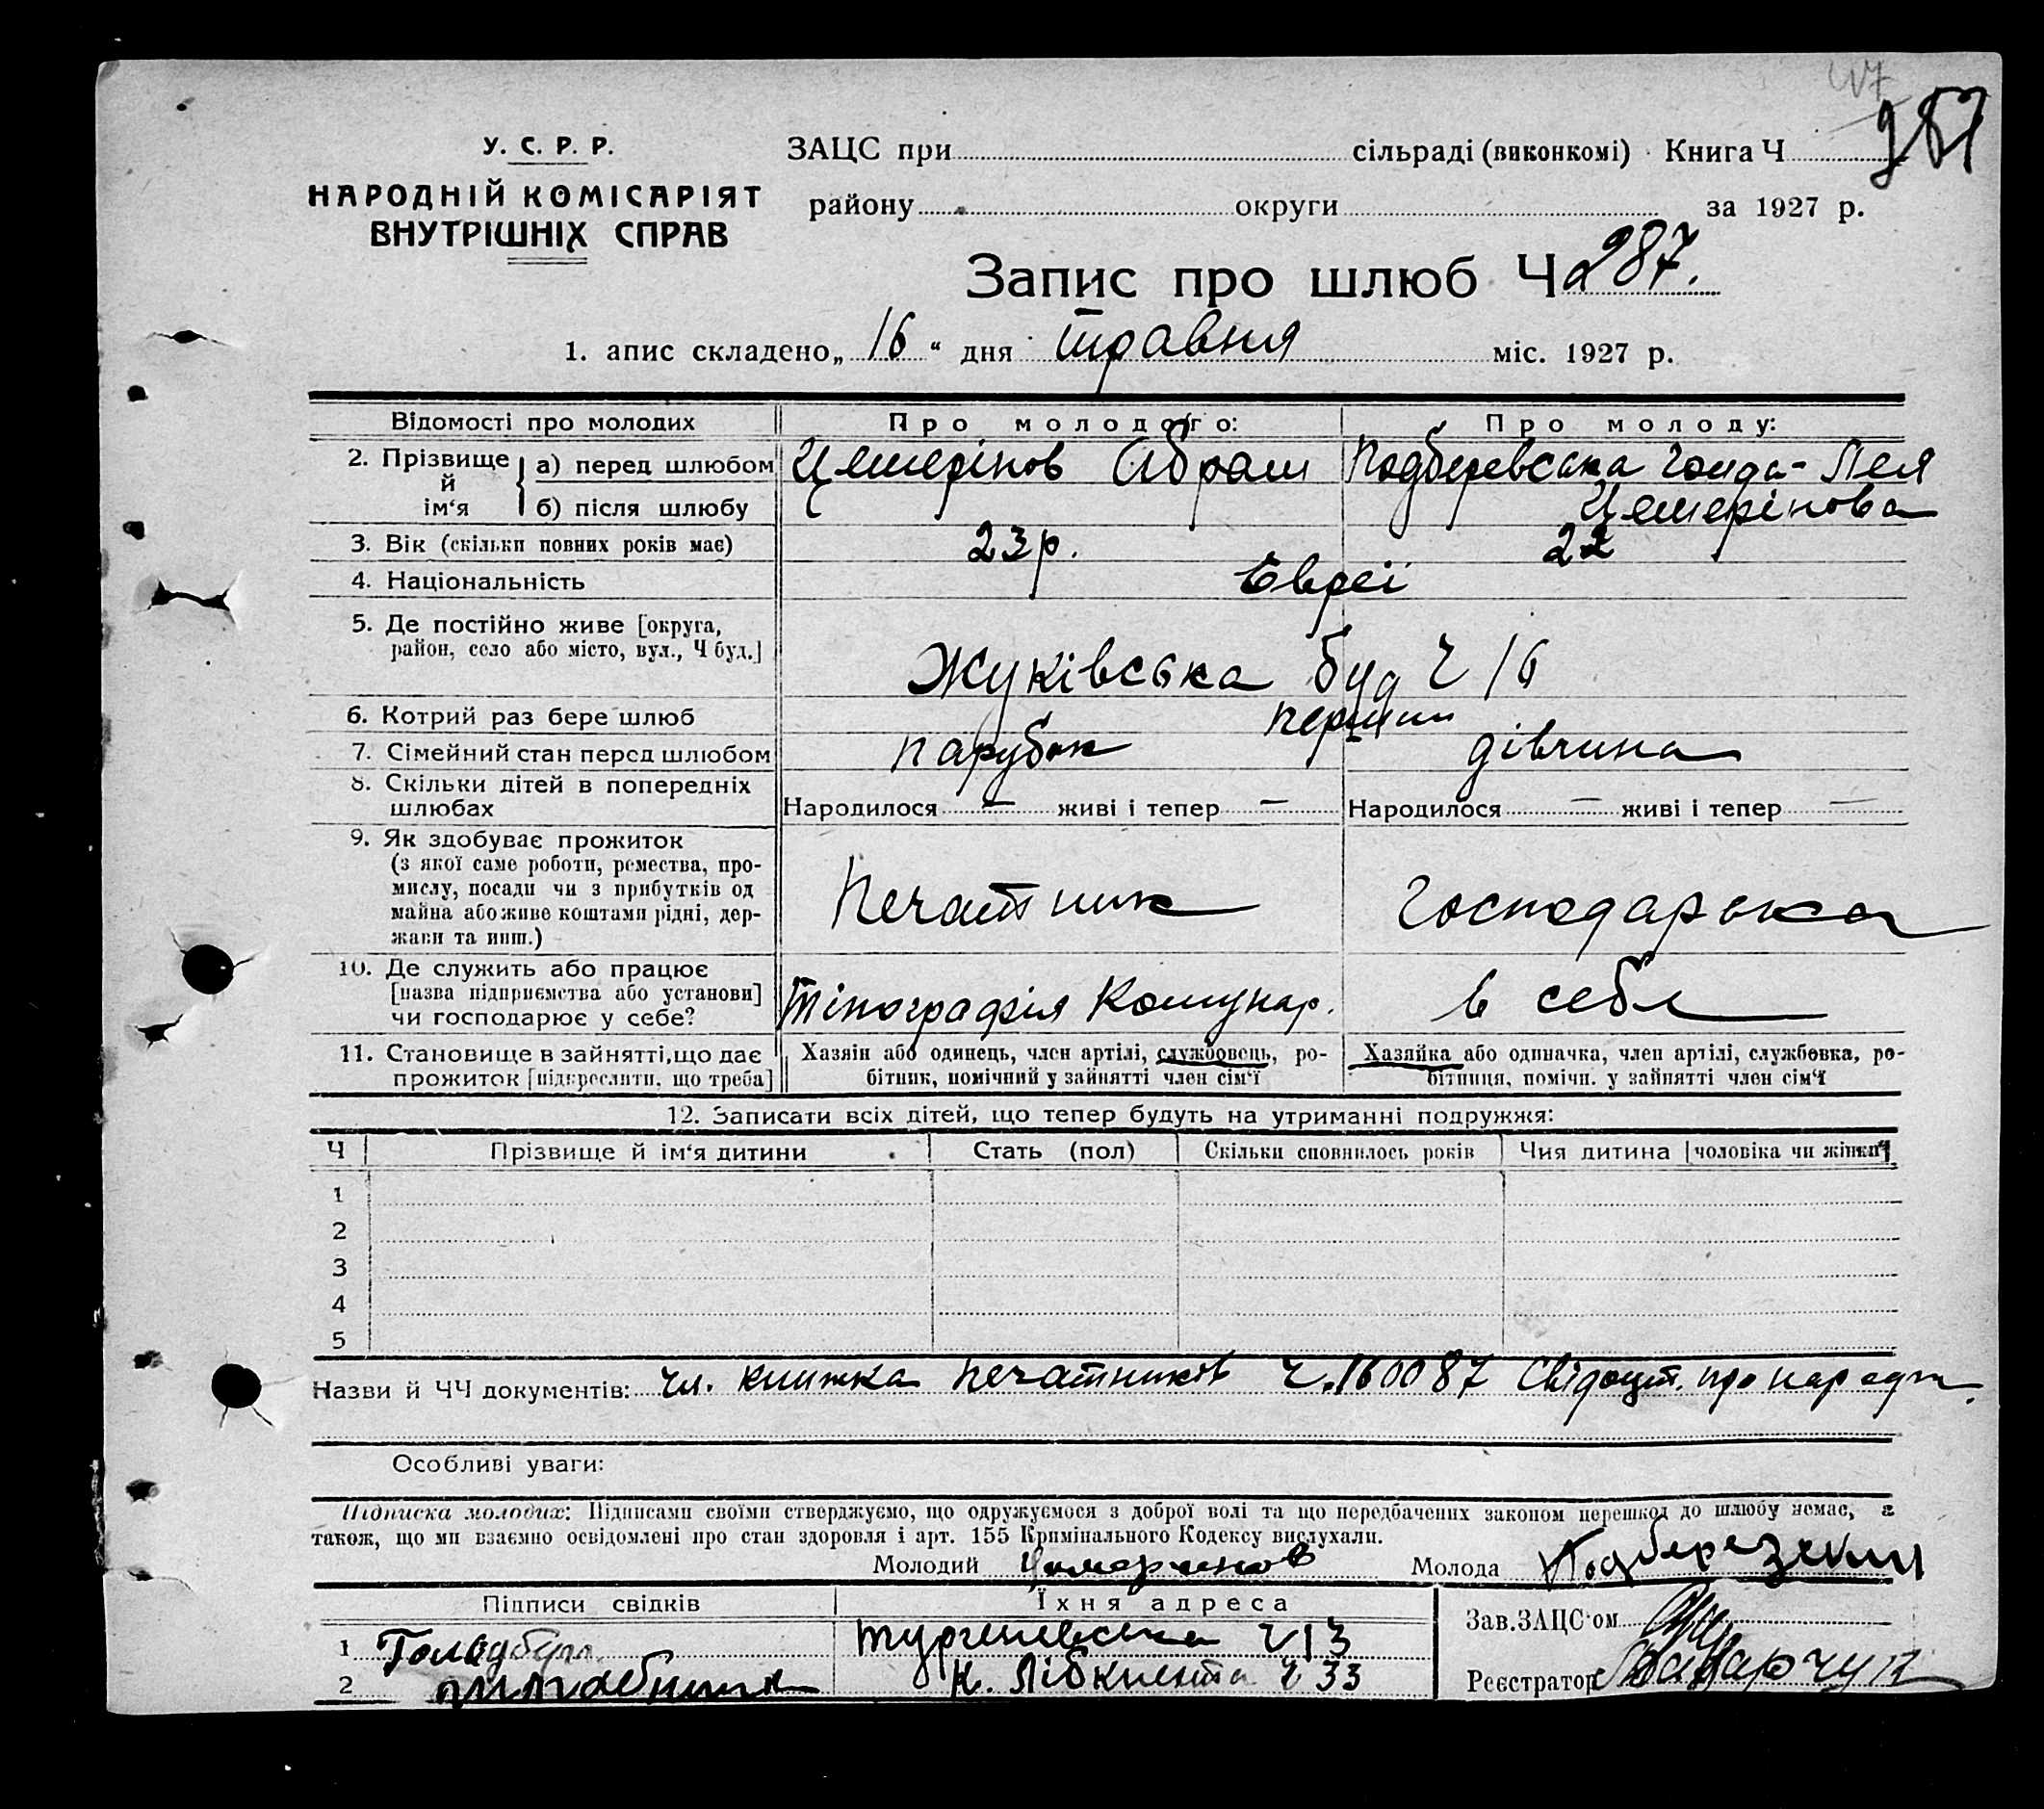 У. С. Р. Р.
НАРОДНІЙ КОМІСАРІЯТ
ВНУТРІШНІХ СПРАВ
ЗАЦС при сільраді (виконкомі) Книга Ч
району округи за 1927 р.
Запис про шлюб Ч 287.
1. апис складено „ 16 “ дня травня міс. 1927 р.
Відомості про молодих Про молодого: Про молоду:
2. Прізвище й ім‘я а) перед шлюбом Цемерінов Абрам Подберевська Гонда-Лея
б) після шлюбу Цемерінова
3. Вік (скільки повних років має) 23 р. 22
4. Національність Євреї
5. Де постійно живе [округа,
район, село або місто, вул., Ч буд.] Жуківська буд Ч 16
6. Котрий раз бере шлюб перший
7. Сімейний стан перед шлюбом парубок дівчина
8. Скільки дітей в попередніх
шлюбах Народилося — живі і тепер — Народилося — живі і тепер —
9. Як здобуває прожиток
(з якої саме роботи, ремества, про-
мислу, посади чи з прибутків од
майна або живе коштами рідні, дер-
жави та инш.) Печатник Господарька
10. Де служить або працює
[назва підприємства або установи]
чи господарює у себе? Тіпографія Комунар. в себе
11. Становище в зайнятті, що дає
прожиток [підкреслити, що треба]
Хазяїн або одинець, член артілі, службовець, ро-
бітник, помічний у зайнятті член сім‘ї
Хазяйка або одиначка, член артілі, службовка, ро-
бітниця, помічн. у зайнятті член сім‘ї
12. Записати всіх дітей, що тепер будуть на утриманні подружжя:
Ч Прізвище й ім‘я дитини Стать (пол) Скільки сповнилось років Чия дитина [чоловіка чи жінки]
1
2
3
4
5
Назви й ЧЧ документів: чл. книжка печатників Ч. 160087 Свідоцт. про народж.
Особливі уваги:
Підписка молодих: Підписами своїми стверджуємо, що одружуємося з доброї волі та що передбачених законом перешкод до шлюбу немає, а
також, що ми взаємно освідомлені про стан здоровля і арт. 155 Кримінального Кодексу вислухали.
Молодий Цемеринов Молода
Підписи свідків Їхня адреса
1 Тургенівська Ч 13
2 К. Лібкнехта Ч 33
Зав. ЗАЦС‘ом
Реєстратор